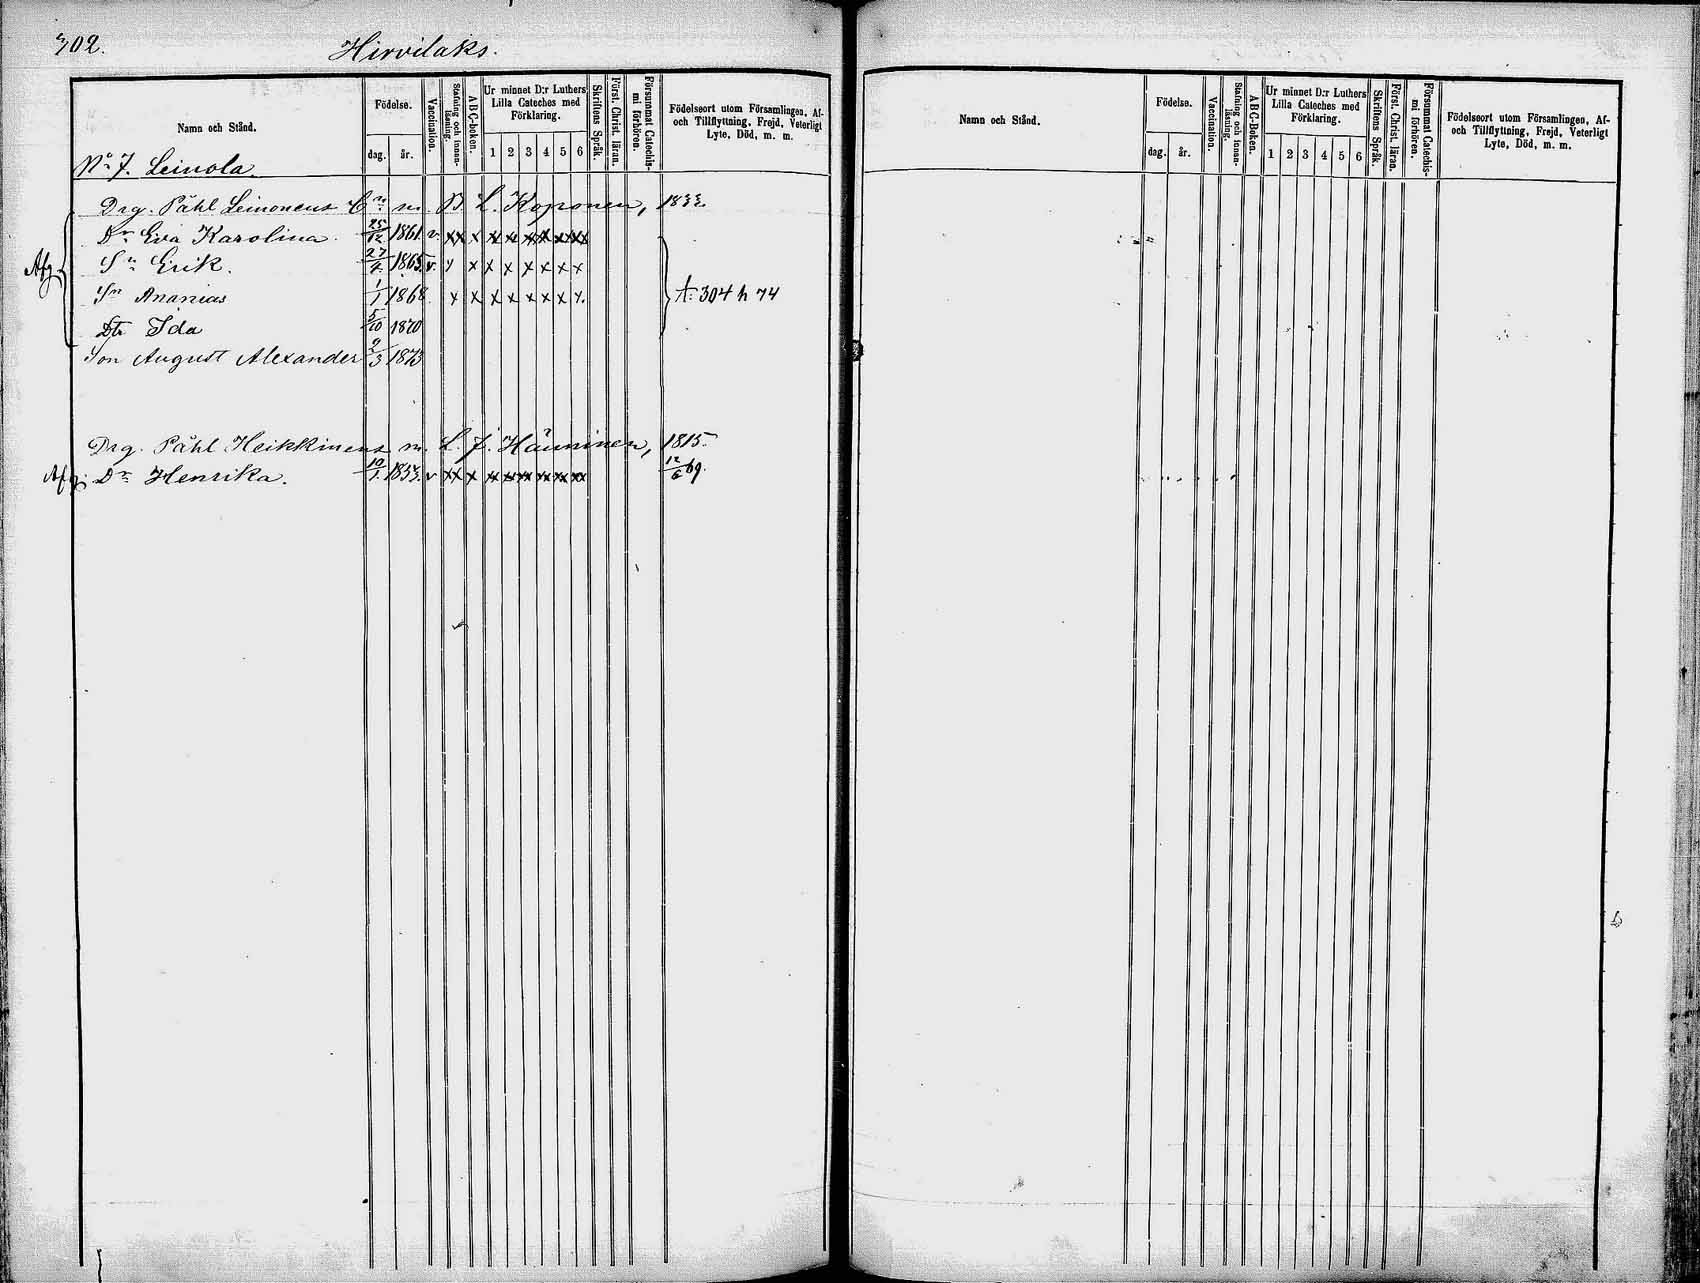 302. Hirvilaks.
Namn och Stånd. Födelse. dag. år. Vaccination. Stafning och innanläsning. ABC-boken. Ur minnet D:r Luthers Lilla Cateches med Förklaring. 1 2 3 4 5 6 Skriftens Språk. Först. Christ. läran. Försummat Catechismi förhören. Födelseort utom Församlingen, Af- och Tillflyttning, Frejd, Veterligt Lyte, Död, m. m.
No 7. Leinola.
Drg. Påhl Leinonens m. L. Koponen, 1833.
Dr Eva Karolina. 25/12 1861. v. xx x x x x x x x
Afg. Sn Erik. 27/4 1865. v. y x x x x x x x
Sn Ananias 1/1 1868 x x x x x x x x. A: 304 h 74
Dtr Ida 5/10 1870
Son August Alexander 9/3 1873
Drg. Påhl Heikkinens m. L. J. Hänninen, 1815.
Afg. Dr Henrika. 10/1. v xx x x x x x x x 12/6 69.
Namn och Stånd. Födelse. dag. år. Vaccination. Stafning och innanläsning. ABC-Boken. Ur minnet D:r Luthers Lilla Cateches med Förklaring. 1 2 3 4 5 6 Skriftens Språk. Först. Christ. läran. Försummat Catechismi förhören. Födelseort utom Församlingen, Af- och Tillflyttning, Frejd, Veterligt Lyte, Död, m. m.